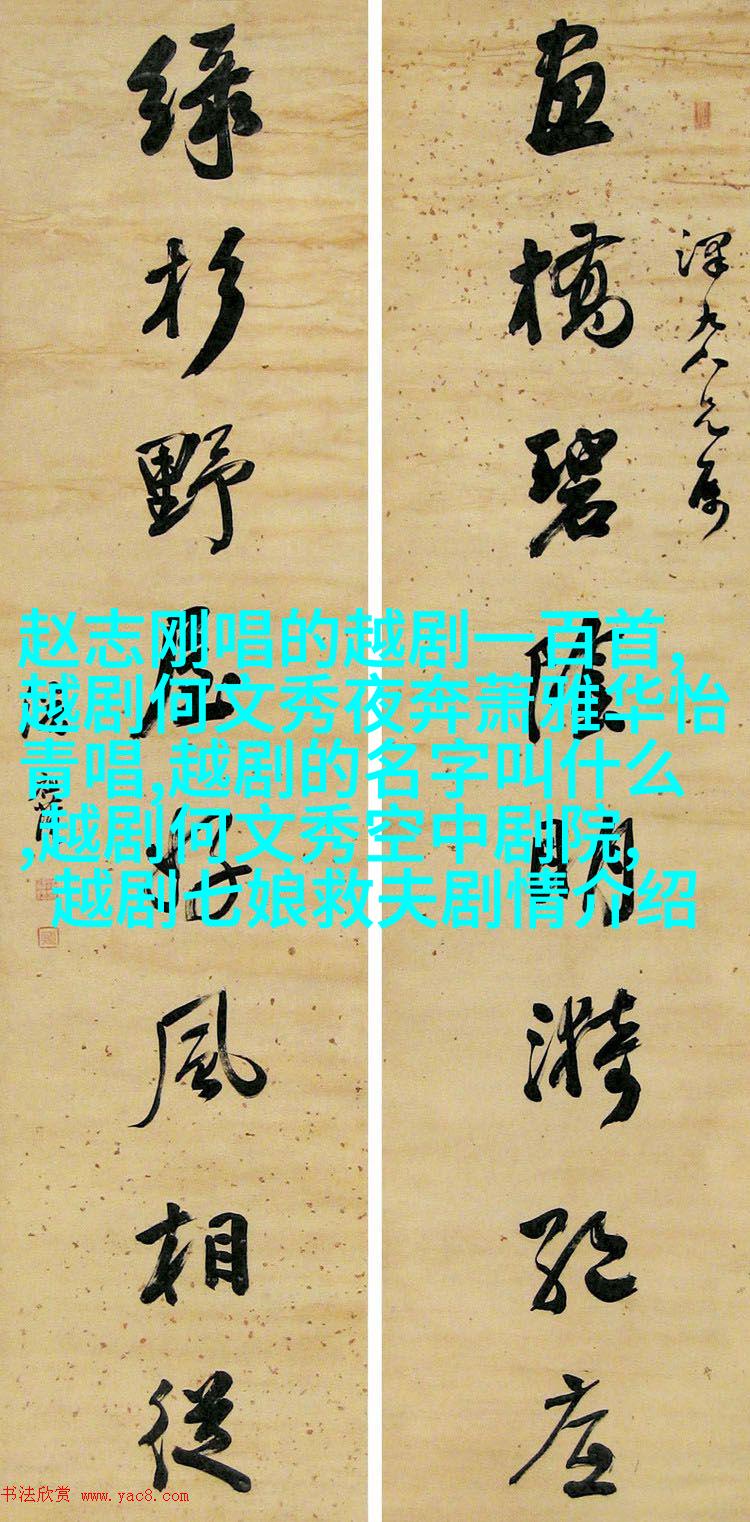 畫橋碧陰明漪絕底
綠杉野屋好風相從
赵志刚唱的越剧一百首,
越剧何文秀夜奔萧雅华怡
青唱,越剧的名字叫什么
,越剧何文秀空中剧院,
越剧七娘救夫剧情介绍
书法欣赏 www.yac8.com